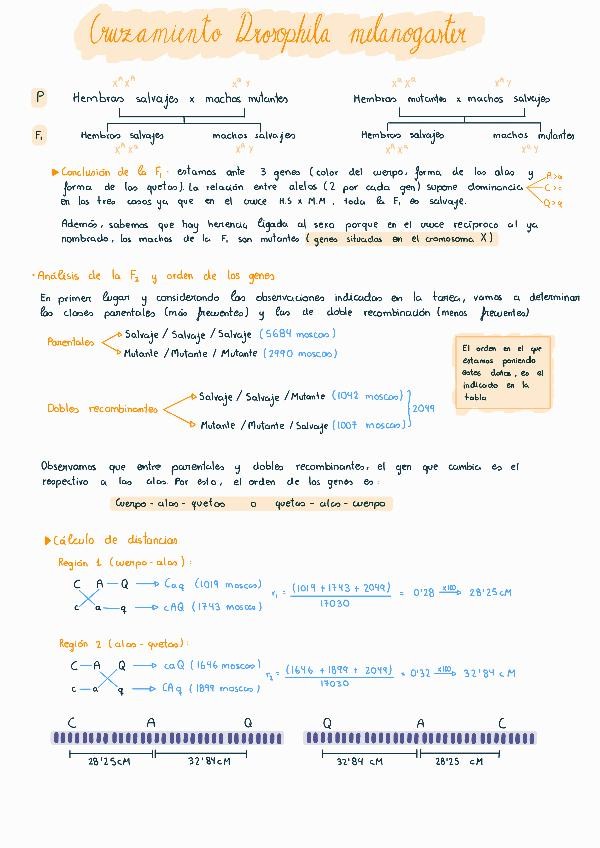 Cruzamiento Drosophila melanogaster
X^A X^A X^a Y X^a X^a X^A Y
P Hembras salvajes x machos mutantes Hembras mutantes x machos salvajes
F₁ Hembras salvajes machos salvajes Hembras salvajes machos mutantes
X^A X^a X^A Y X^A X^a X^a Y
▶Conclusión de la F₁: estamos ante 3 genes (color del cuerpo, forma de las alas y
forma de las quetas). La relación entre alelos (2 por cada gen) supone dominancia
en los tres casos ya que en el cruce H.S x M.M, toda la F₁ es salvaje.
A>a
C>c
Q>q
Además, sabemos que hay herencia ligada al sexo porque en el cruce recíproco al ya
nombrado, los machos de la F₁ son mutantes (genes situados en el cromosoma X)
·Análisis de la F₂ y orden de los genes
En primer lugar y considerando las observaciones indicadas en la tarea, vamos a determinar
las clases parentales (más frecuentes) y las de doble recombinación (menos frecuentes)
Parentales
Salvaje / Salvaje / Salvaje (5684 moscas)
Mutante / Mutante / Mutante (2990 moscas)
El orden en el que
estamos poniendo
estos datos, es el
indicado en la
tabla
Dobles recombinantes
Salvaje / Salvaje / Mutante (1042 moscas)
Mutante / Mutante / Salvaje (1007 moscas)
2049
Observamos que entre parentales y dobles recombinantes, el gen que cambia es el
respectivo a las alas. Por esto, el orden de los genes es:
Cuerpo - alas - quetas o quetas - alas - cuerpo
▶Cálculo de distancias
Región 1 (cuerpo-alas):
C A — Q → Caq (1019 moscas)
c a — q → cAQ (1743 moscas)
r₁ = (1019 + 1743 + 2049) / 17030 = 0'28 x100 → 28'25 cM
Región 2 (alas - quetas):
C — A Q → caQ (1646 moscas)
c — a q → CAq (1899 moscas)
r₂ = (1646 + 1899 + 2049) / 17030 = 0'32 x100 → 32'84 cM
C A Q Q A C
28'25cM 32'84cM 32'84 cM 28'25 cM